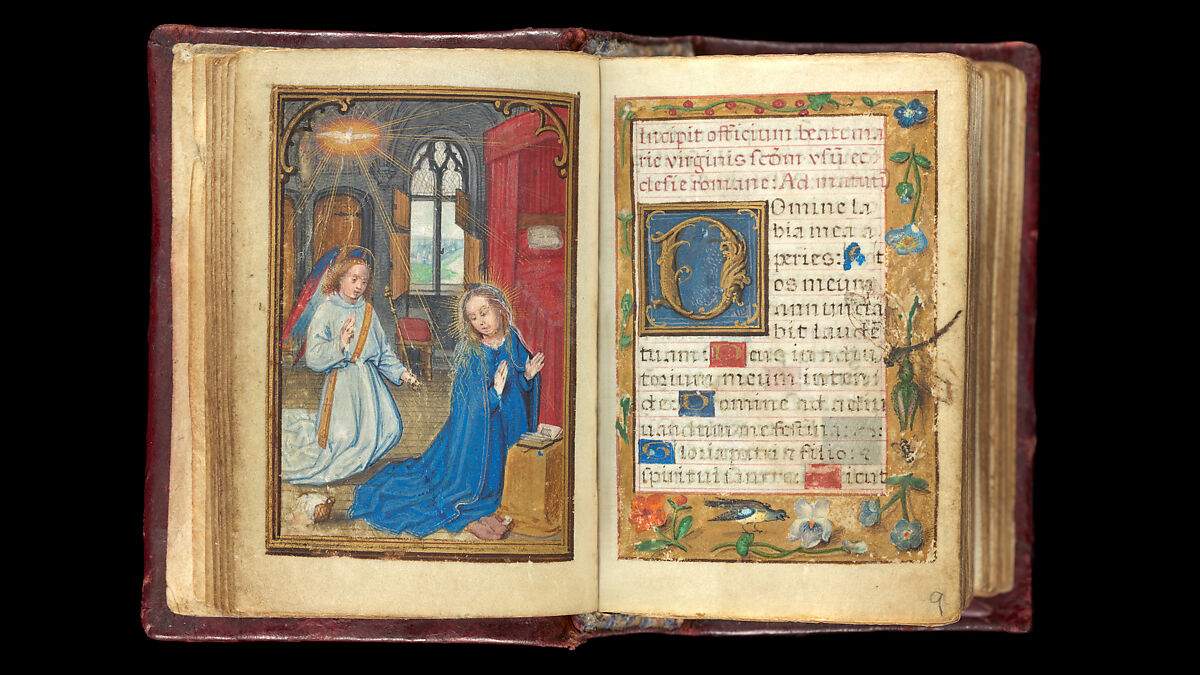 Incipit officium beate ma
rie virginis scd̄m vsū ec
clesie romane: Ad matutī
Domine la
bia mea a
peries: Et
os meum
annuncia
bit laudē
tuam: Deus in adiu
torium meum inten
de: Domine ad adiu
uandum me festina:
Gloria patri et filio: et
spiritui sancto: Sicut
9